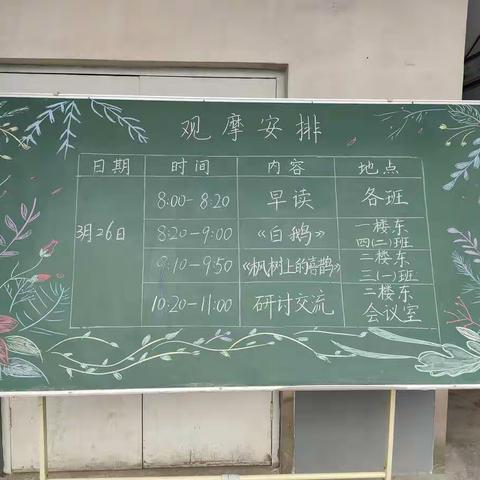 观摩安排
日期 时间 内容 地点
3月26日
8:00-8:20 早读 各班
8:20-9:00 《白鹅》 一楼东
四(二)班
9:10-9:50 《枫树上的喜鹊》 二楼东
三(一)班
10:20-11:00 研讨交流 二楼东
会议室